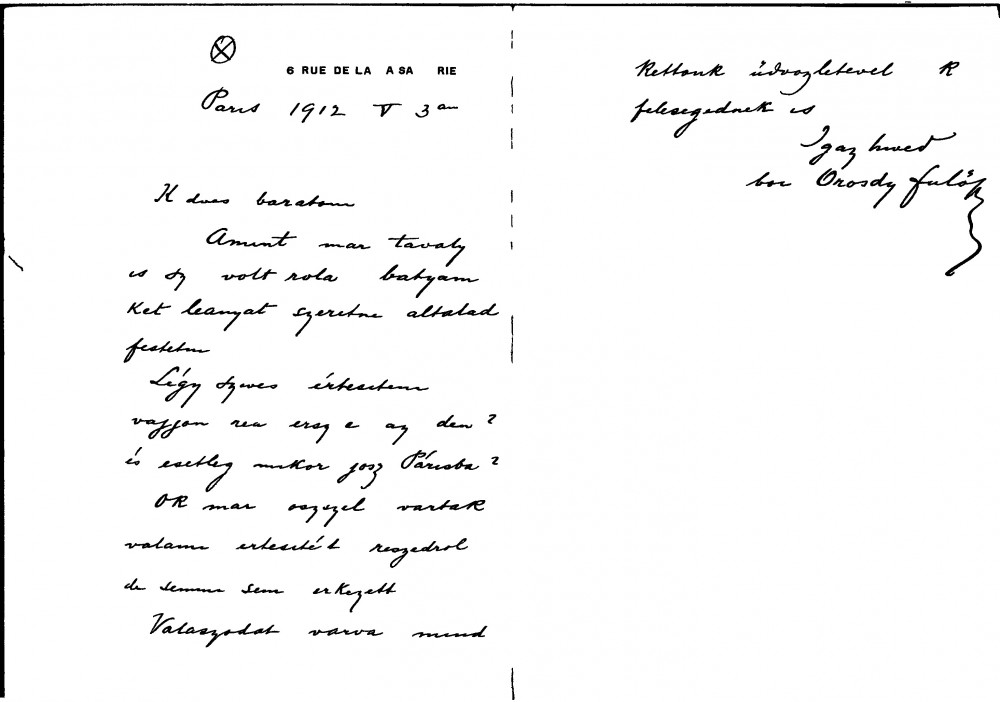 6 RUE DE LA ASA RIE
Paris 1912 V 3 an
K dves baratom
Amint mar tavaly
is sz volt rola batyam
Ket leanyat szeretne altalad
festetni
Légy szives értesiteni
vajjon rea ersz e az iden ?
és esetleg mikor josz Párisba ?
OK mar oszszel vartak
valami ertesité t reszedrol
de semmi sem erkezett
Valaszodat varva mind
Kettonk üdvozletevel K
felesegednek is
Igaz hived
Orosdy fulöp